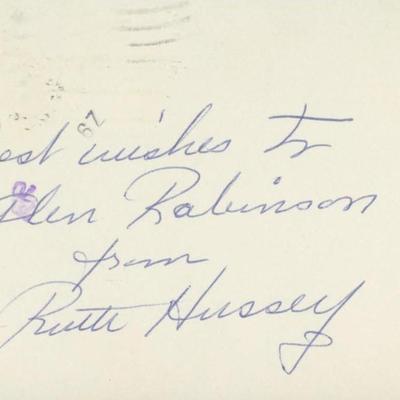 est wishes to
len Robinson
from
Ruth Hussey